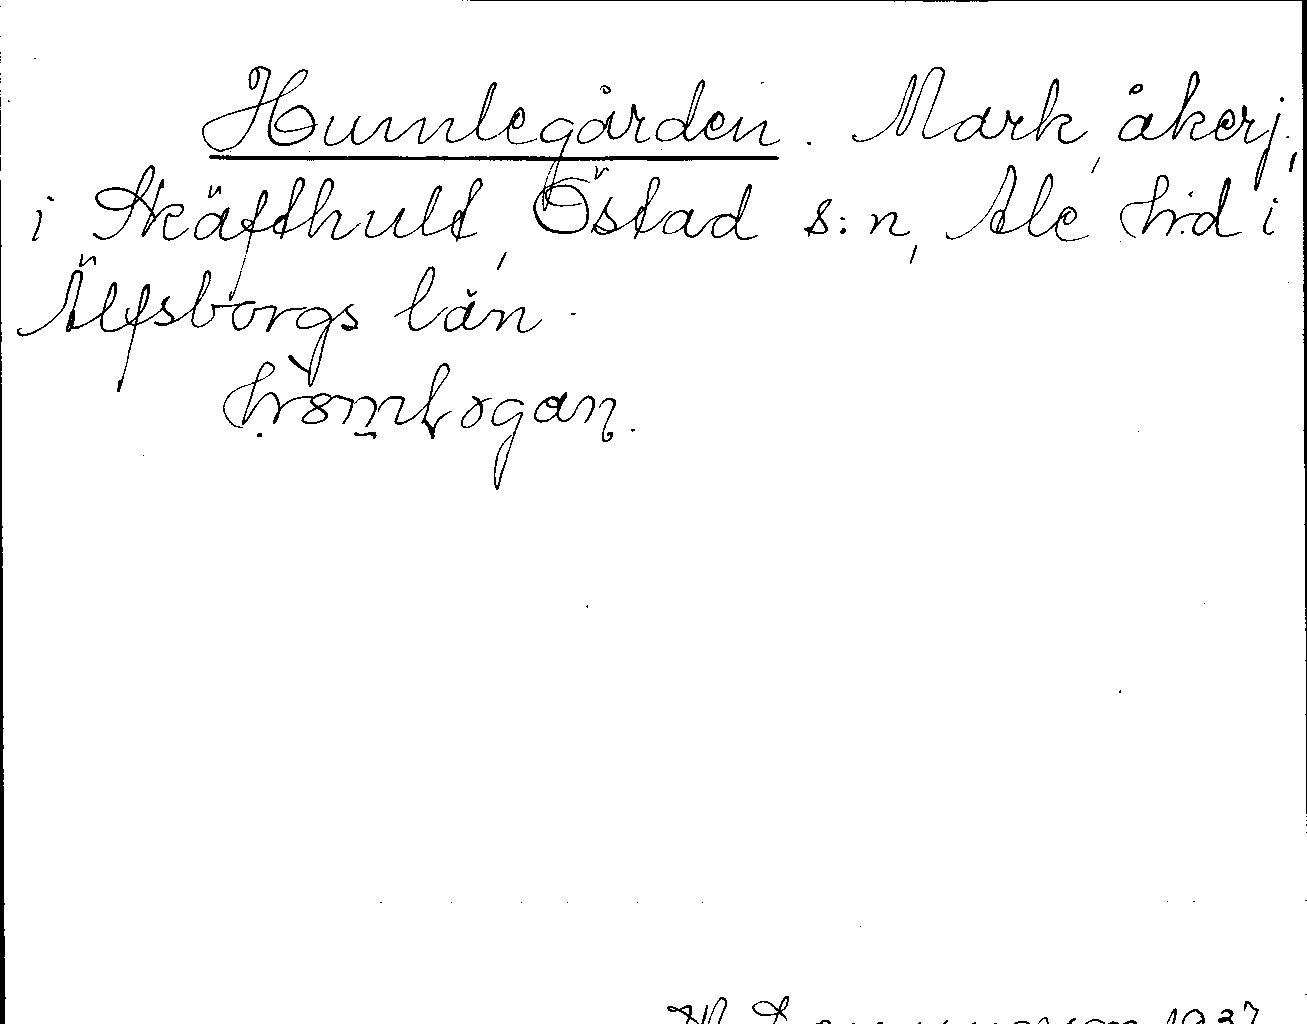 Humlegården. Mark, åkerj.,
i Skäfthult, Östad s:n, Ale hrd i
Älfsborgs län.
1937